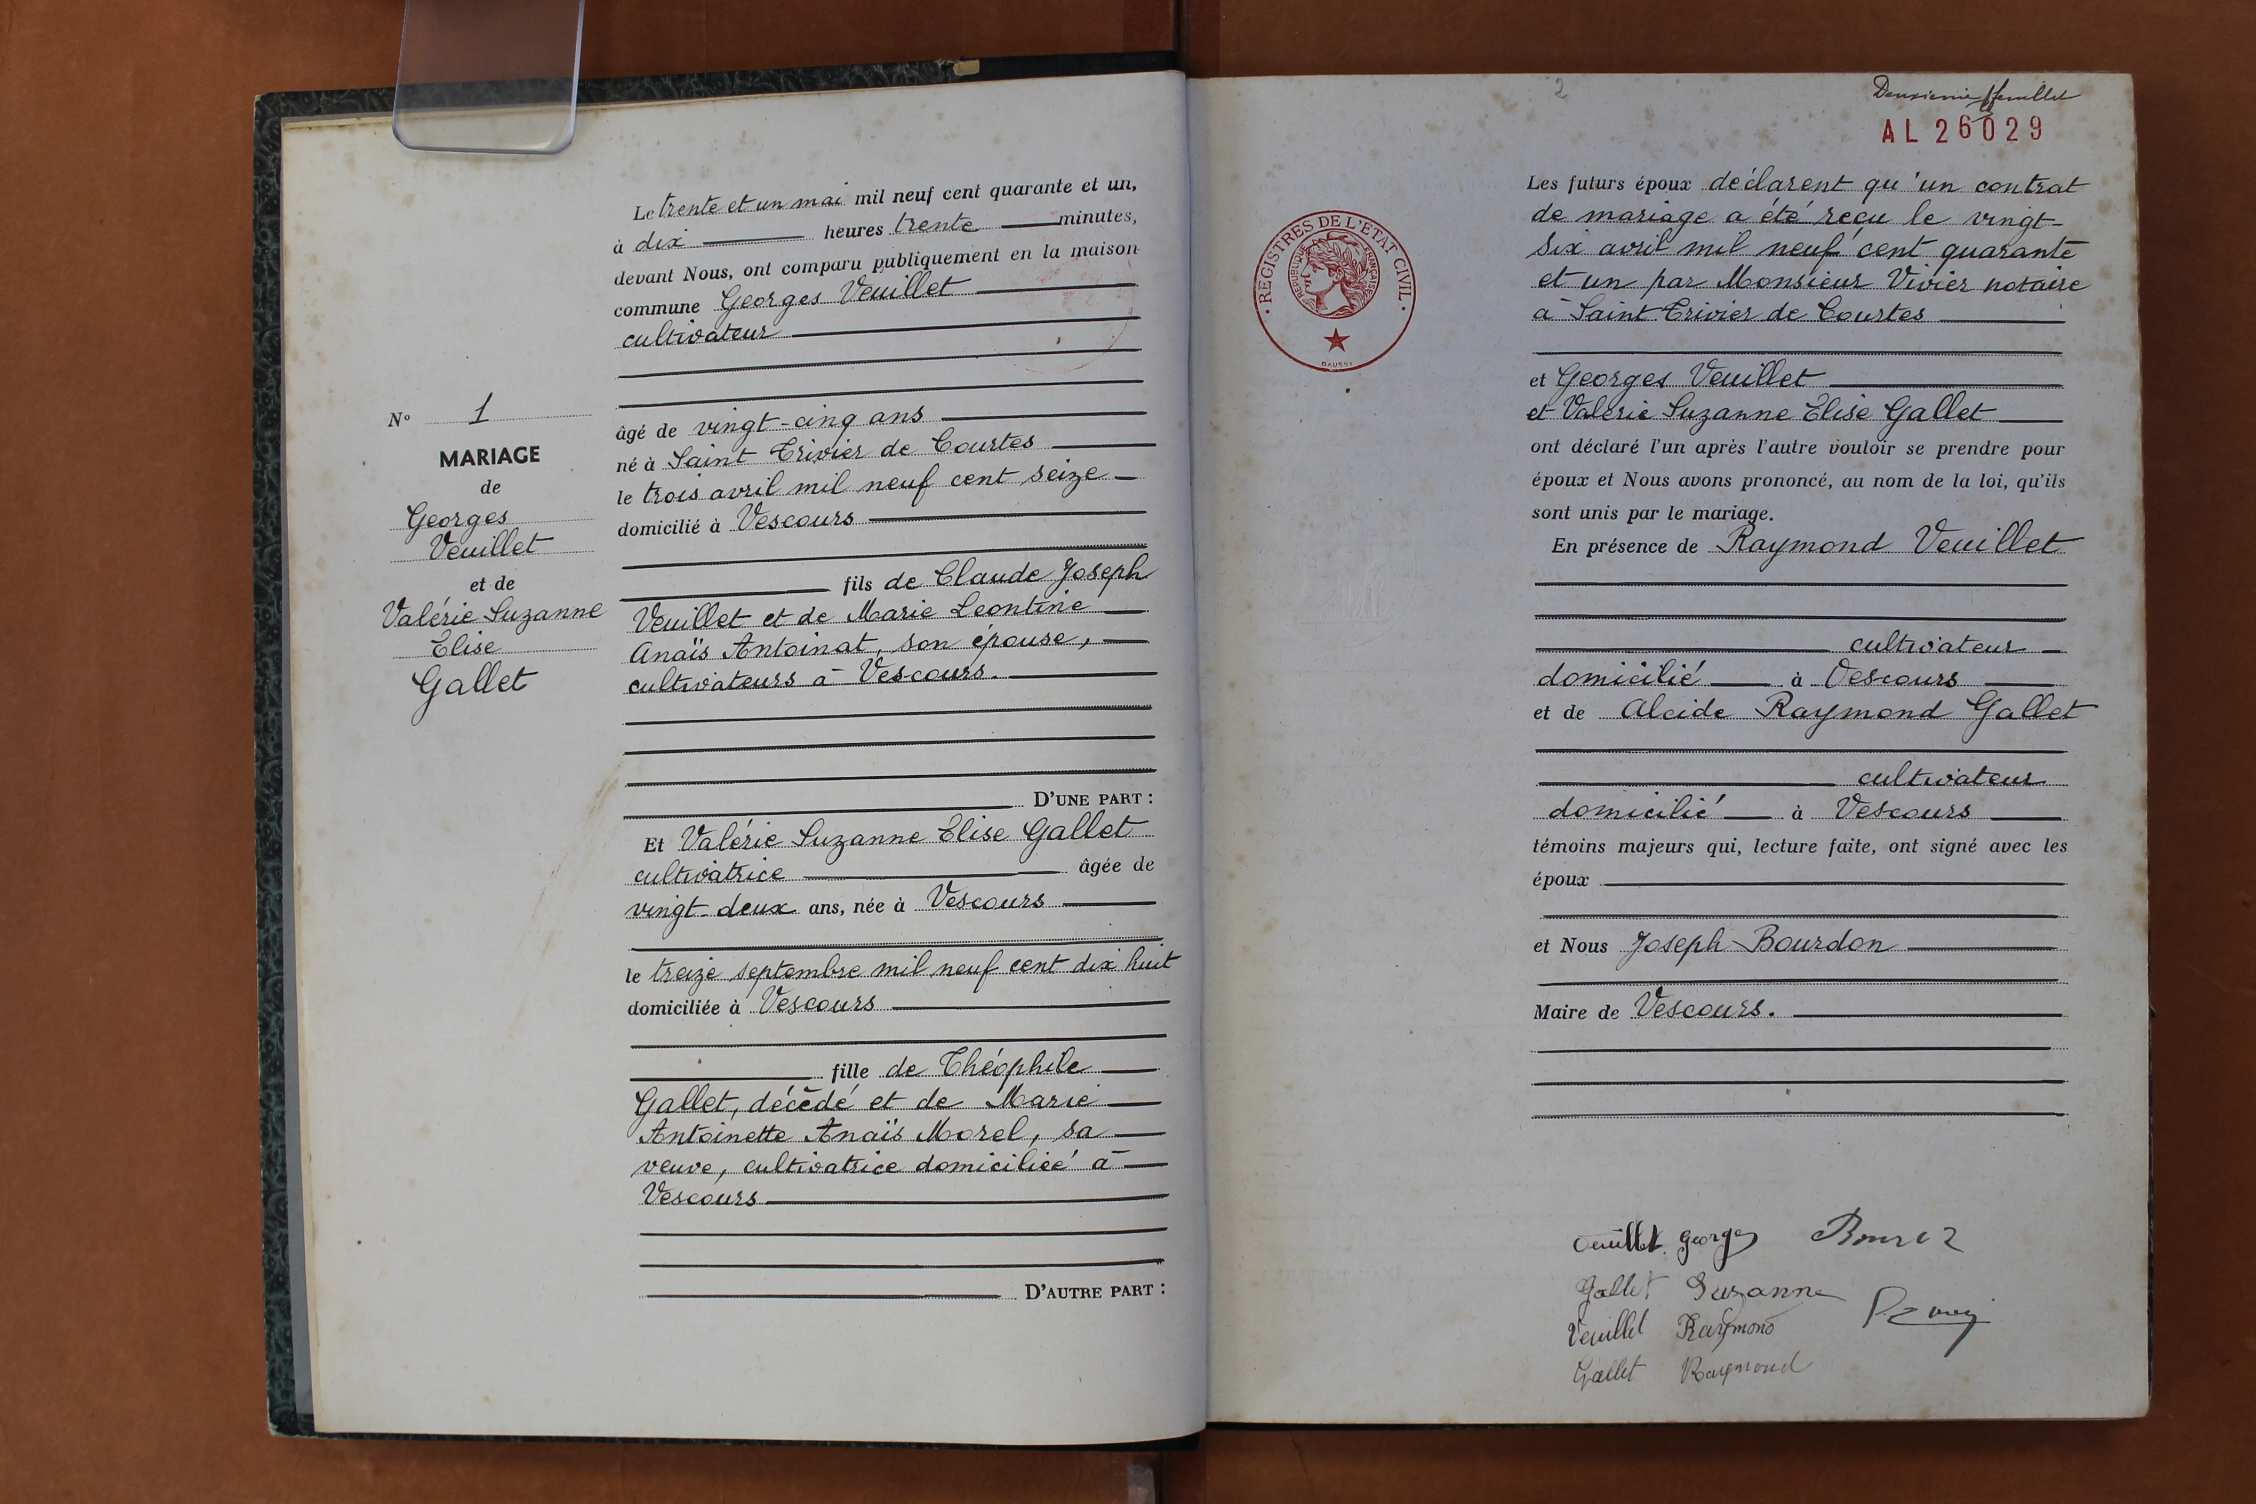 Le trente et un mai mil neuf cent quarante et un,
à dix heures trente minutes,
devant Nous, ont comparu publiquement en la maison
commune Georges Veuillet
cultivateur
âgé de vingt-cinq ans
né à Saint Trivier de Courtes
le trois avril mil neuf cent seize
domicilié à Vescours
fils de Claude Joseph
Veuillet et de Marie Leontine
Anaïs Antoinat, son épouse,
cultivateurs à Vescours.
D'UNE PART :
Et Valérie Suzanne Elise Gallet
cultivatrice âgée de
vingt-deux ans, née à Vescours
le treize septembre mil neuf cent dix huit
domiciliée à Vescours
fille de Théophile
Gallet, décédé et de Marie
Antoinette Anaïs Morel, sa
veuve, cultivatrice domiciliée à
Vescours
D'AUTRE PART :
N° 1
MARIAGE
de
Georges
Veuillet
et de
Valérie Suzanne
Elise
Gallet
2
Deuxième feuillet
AL 26029
REGISTRES DE L'ÉTAT CIVIL
RÉPUBLIQUE FRANÇAISE
Les futurs époux déclarent qu'un contrat
de mariage a été reçu le vingt-
six avril mil neuf cent quarante
et un par Monsieur Vivier notaire
à Saint Trivier de Courtes
et Georges Veuillet
et Valérie Suzanne Elise Gallet
ont déclaré l'un après l'autre vouloir se prendre pour
époux et Nous avons prononcé, au nom de la loi, qu'ils
sont unis par le mariage.
En présence de Raymond Veuillet
cultivateur
domicilié à Vescours
et de Alcide Raymond Gallet
cultivateur
domicilié à Vescours
témoins majeurs qui, lecture faite, ont signé avec les
époux
et Nous Joseph Bourdon
Maire de Vescours.
Veuillet Georges
Gallet Suzanne
Veuillet Raymond
Gallet Raymond